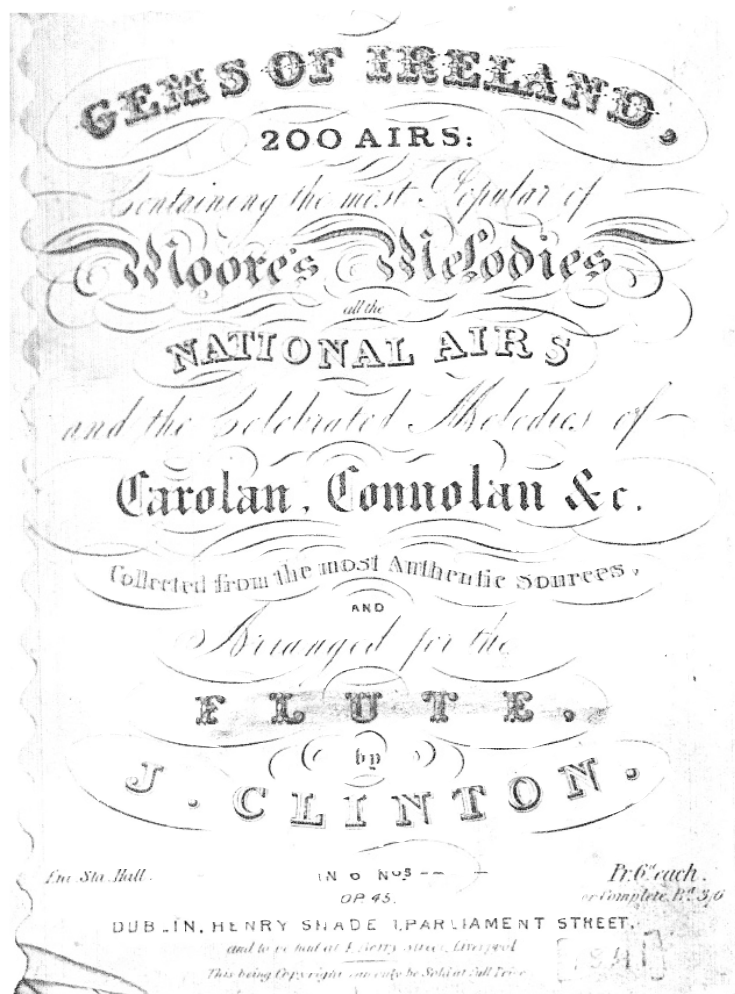 GEMS OF IRELAND,
200 AIRS:
Containing the most Popular of
Moore's Melodies
all the
NATIONAL AIRS
and the Celebrated Melodies of
Carolan, Connolan &c.
Collected from the most Authentic Sources,
AND
Arranged for the
FLUTE.
by
J. CLINTON.
Ent. Sta. Hall.
IN 6 Nos
Pr. 6d each.
or Complete, Bd 3/6
OP 45.
DUBLIN, HENRY SHADE 1, PARLIAMENT STREET,
and to be had at Street, Liverpool
This being Copyright can only be Sold at Full Price